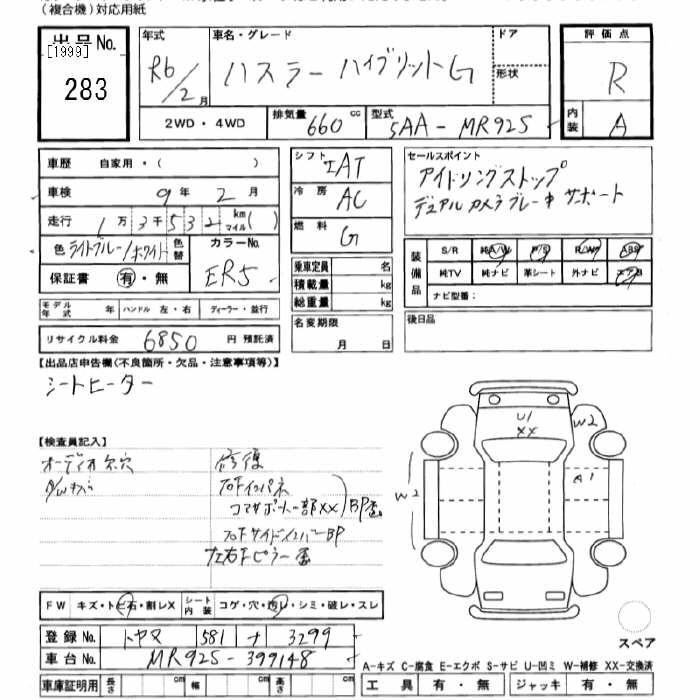 (複合機)対応用紙
出品No.
[1999]
283
年式 R6/2月
車名・グレード ハスラー ハイブリットG
ドア
形状
評価点 R
内装 A
2WD・4WD
排気量 660 cc
型式 5AA-MR92S
車歴 自家用・( )
車検 9年2月
走行 1万3千532 km マイル( )
色 ライトブルー/ホワイト
色替
カラーNo. ER5
保証書 有・無
モデル年式 年 ハンドル 左・右 ディーラー・並行
リサイクル料金 6850 円 預託済
シフト IAT
冷房 AC
燃料 G
乗車定員 名
積載量 kg
総重量 kg
名変期限
月 日
セールスポイント
アイドリングストップ
デュアルカメラブレーキサポート
装備品
S/R 純A/W P/S R/W ABS
純TV 純ナビ 革シート 外ナビ エアB
ナビ型番:
後日品
【出品店申告欄(不良箇所・欠品・注意事項等)】
シートヒーター
【検査員記入】
オーディオ欠穴
修復
コアサポート一部XX
BP
左右Fピラー
U1
XX
W2
W2
A1
FW キズ・トビ石・割レX
シート内装 コゲ・穴・汚レ・シミ・破レ・スレ
登録No. トヤマ 581 ナ 3299
車台No. MR92S-399148
車庫証明用 長さ cm 幅 cm 高さ cm
スペア
A-キズ C-腐食 E-エクボ S-サビ U-凹ミ W-補修 XX-交換済
工具 有・無 ジャッキ 有・無